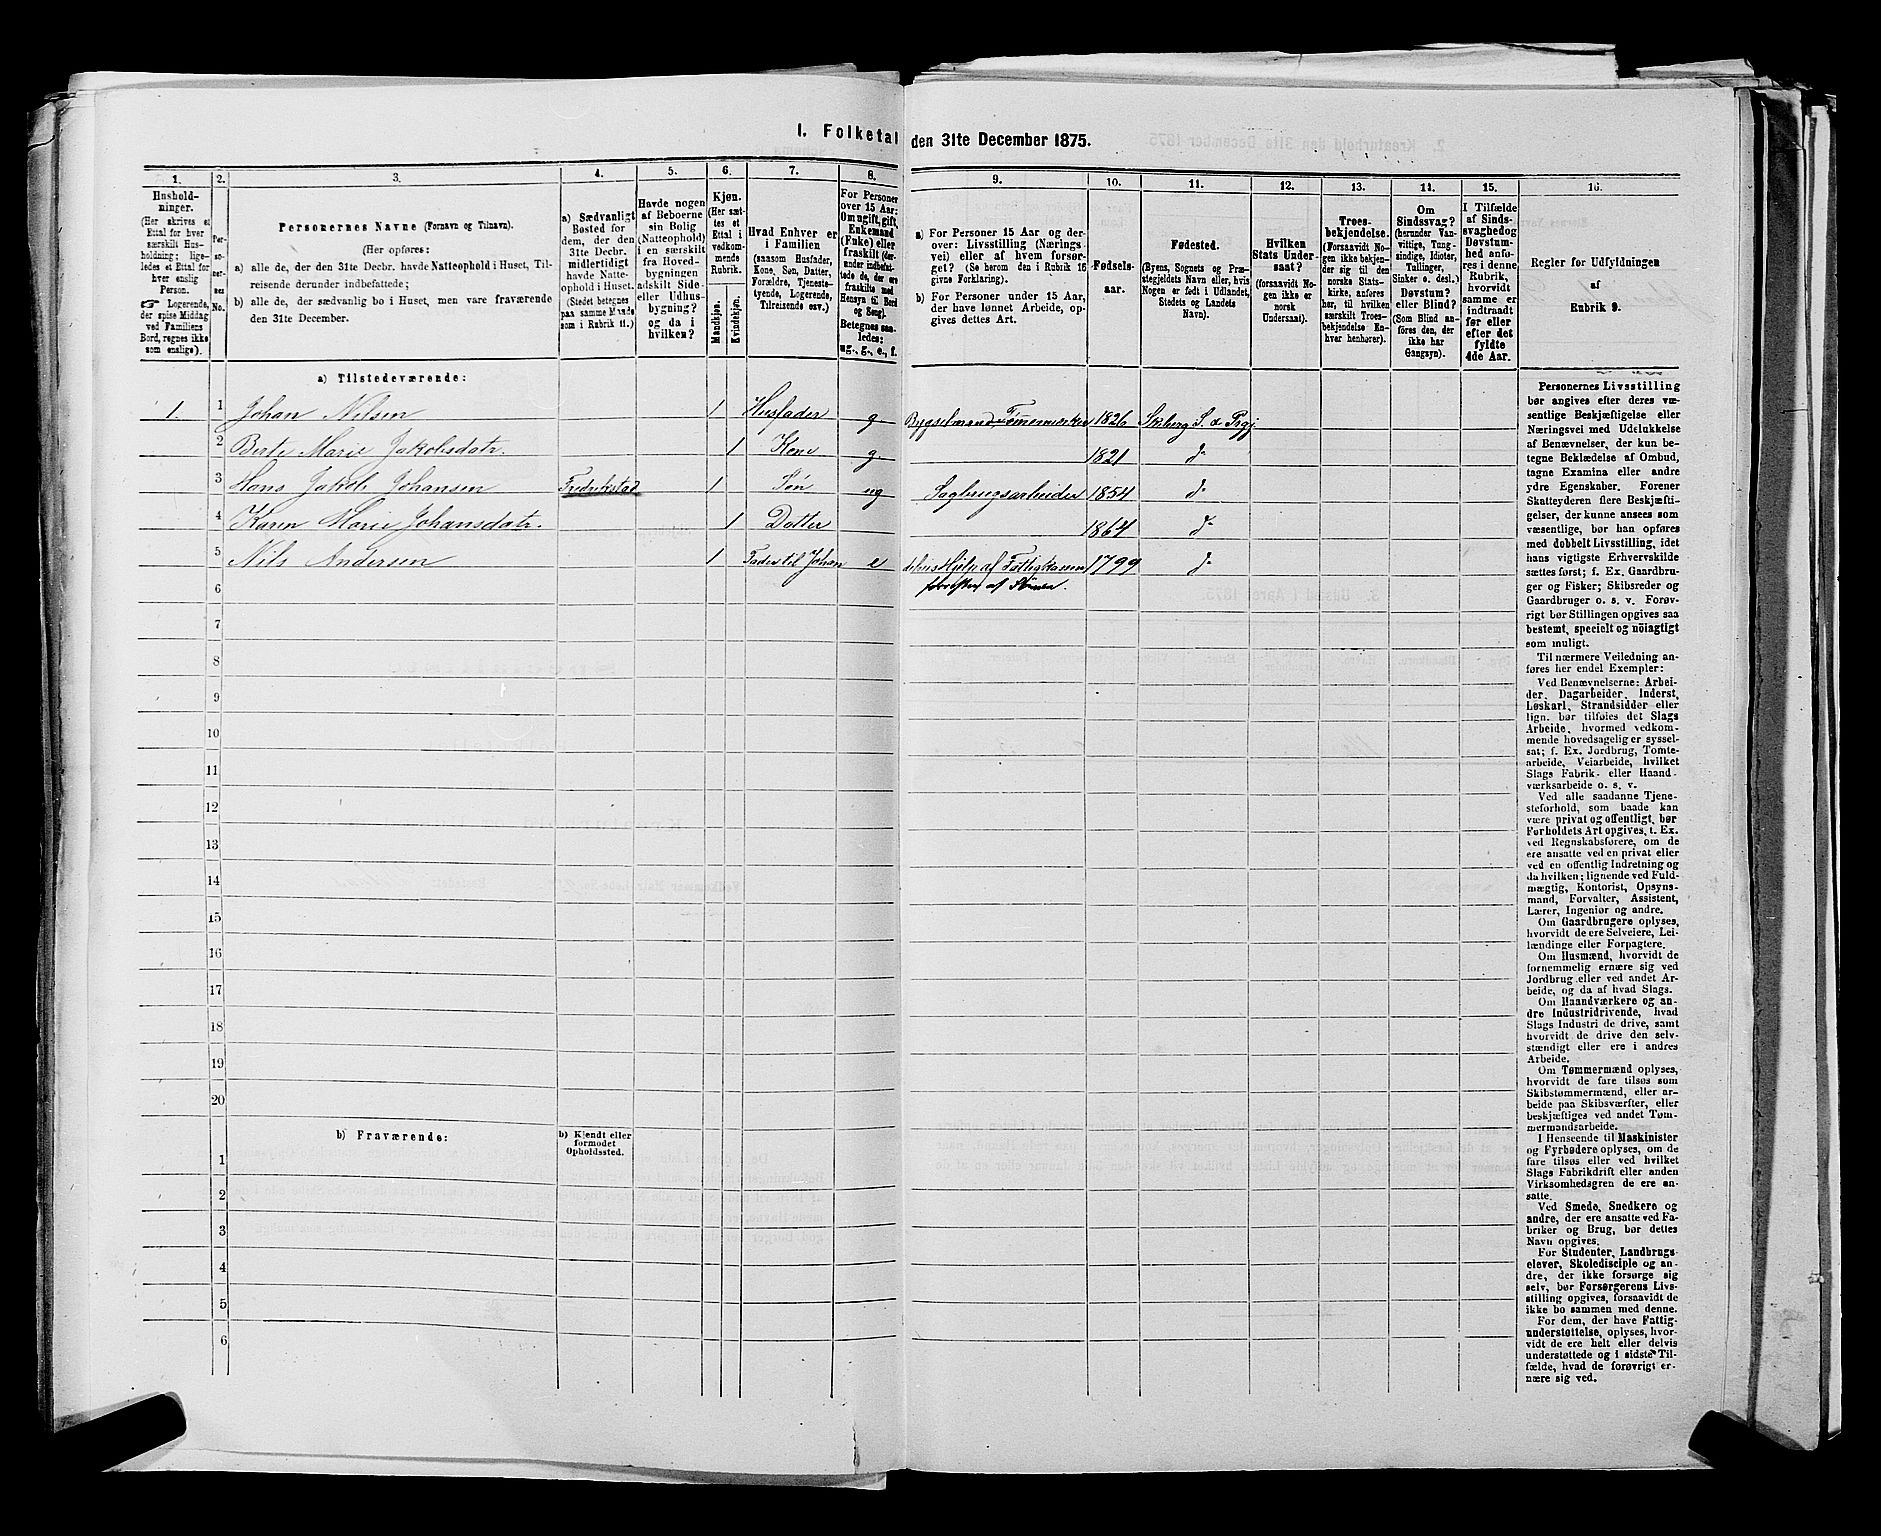 1. Folketal den 31te December 1875.
1. 2. 3. 4. 5. 6. 7. 8. 9. 10. 11. 12. 13. 14. 15. 16.
Hushold-
ninger.
(Her skrives et
Ettal for hver
særskilt Hus-
holdning; lige-
ledes et Ettal for
hver enslig
Person.
☞ Logerende,
der spise Middag
ved Familiens
Bord, regnes ikke
som enslige).
Per-
so-
ner-
nes
No.
Personernes Navne (Fornavn og Tilnavn).
(Her opføres:
a) alle de, der den 31te Decbr. havde Natteophold i Huset, Til-
reisende derunder indbefattede;
b) alle de, der sædvanlig bo i Huset, men vare fraværende
den 31te December.
a) Sædvanligt
Bosted for
dem, der den
31te Decbr.
midlertidigt
havde Natte-
ophold i Huset.
(Stedet betegnes
paa samme Maade
som i Rubrik 11.)
Havde nogen
af Beboerne
sin Bolig
(Natteophold)
i en særskilt
fra Hoved-
bygningen
adskilt Side-
eller Udhus-
bygning?
og da i
hvilken?
Kjøn.
(Her sæt-
tes et
Ettal i
vedkom-
mende
Rubrik.
Mandkjøn.
Kvindekjøn.
Hvad Enhver er
i Familien
(saasom Husfader,
Kone, Søn, Datter,
Forældre, Tjeneste-
tyende, Logerende,
Tilreisende osv.)
For Personer
over 15 Aar:
Om ugift, gift,
Enkemand
(Enke) eller
fraskilt (der-
under indbefat-
tede de, der ere
fraskilte med
Hensyn til Bord
og Seng).
Betegnes saa-
ledes:
ug., g., e., f.
a) For Personer 15 Aar og der-
over: Livsstilling (Nærings-
vei) eller af hvem forsør-
get? (Se herom den i Rubrik 16
givne Forklaring).
b) For Personer under 15 Aar,
der have lønnet Arbeide, op-
gives dettes Art.
Fødsels-
aar.
Fødested.
(Byens, Sognets og Præ-
stegjeldets Navn eller, hvis
Nogen er født i Udlandet,
Stedets og Landets
Navn).
Hvilken
Stats Under-
saat?
(forsaavidt No-
gen ikke er
norsk
Undersaat).
Troes-
bekjendelse.
(Forsaavidt No-
gen ikke bekjen-
der sig til den
norske Stats-
kirke, anføres
her, til hvilken
særskilt Troes-
bekjendelse En-
hver henhører).
Om
Sindssvag?
(herunder Van-
vittige, Tung-
sindige, Idioter,
Tallinger,
Sinker o. desl.)
Døvstum?
eller Blind?
(Som Blind an-
føres den, der
ikke har
Gangsyn).
I Tilfælde
af Sinds-
svaghed og
Døvstum-
hed anfø-
res i denne
Rubrik,
hvorvidt
samme er
indtraadt
før eller
efter det
fyldte
4de Aar.
Regler for Udfyldningen
af
Rubrik 9.
a) Tilstedeværende:
1. 1 Johan Nilsen 1 Husfader g Bygselmand Tømmermsker 1826 Skiberg S. & Prgj
2 Berte Marie Jakobsdatr. 1 Kone g 1821 do
3 Hans Jakob Johansen Fredrikstad 1 Søn ug Sagbrugsarbeider 1854 do
4 Karen Marie Johansdatr. 1 Datter 1864 do
5 Nils Andersen 1 Fader til Johan e Hjelp af Fattigkassen 1799 do
6 af Sønnen.
7
8
9
10
11
12
13
14
15
16
17
18
19
20
b) Fraværende:
b) Kjendt eller
formodet
Opholdssted.
1
2
3
4
5
6
Personernes Livsstilling
bør angives efter deres væ-
sentlige Beskjæftigelse eller
Næringsvei med Udelukkelse
af Benævnelser, der kun be-
tegne Beklædelse af Ombud,
tagne Examina eller andre
ydre Egenskaber. Forener
Skatteyderen flere Beskjæfti-
gelser, der kunne ansees som
væsentlige, bør han opføres
med dobbelt Livsstilling, idet
hans vigtigste Erhvervskilde
sættes først; f. Ex. Gaardbru-
ger og Fisker; Skibsreder og
Gaardbruger o. s. v. Forøv-
rigt bør Stillingen opgives saa
bestemt, specielt og nöiagtigt
som muligt.
Til nærmere Veiledning an-
føres her endel Exempler:
Ved Benævnelserne: Arbei-
der, Dagarbeider, Inderst,
Løskarl, Strandsidder eller
lign. bør tilføies det Slags
Arbeide, hvormed vedkom-
mende hovedsagelig er syssel-
sat; f. Ex. Jordbrug, Tomte-
arbeide, Veiarbeide, hvilket
Slags Fabrik- eller Haand-
værksarbeide o. s. v.
Ved alle saadanne Tjene-
steforhold, som baade kan
være privat og offentligt, bør
Forholdets Art opgives, t. Ex.
ved Regnskabsførere, om de
ere ansatte ved en privat eller
ved en offentlig Indretning og
da hvilken; lignende ved Fuld-
mægtig, Kontorist, Opsyns-
mand, Forvalter, Assistent,
Lærer, Ingeniør og andre.
Om Gaardbrugere oplyses,
hvorvidt de ere Selveiere, Lei-
lændinge eller Forpagtere.
Om Husmænd, hvorvidt de
fornemmelig ernære sig ved
Jordbrug eller ved andet Ar-
beide, og da af hvad Slags.
Om Haandværkere og an-
dre Industridrivende, hvad
Slags Industri de drive, samt
hvorvidt de drive den selv-
stændigt eller ere i andres
Arbeide.
Om Tømmermænd oplyses,
hvorvidt de fare tilsøs som
Skibstømmermænd, eller ar-
beide paa Skibsværfter, eller
beskjæftiges ved andet Tøm-
mermandsarbeide.
I Henseende til Maskinister
og Fyrbødere oplyses, om de
fare tilsøs eller ved hvilket
Slags Fabrikdrift eller anden
Virksomhedsgren de ere an-
satte.
Ved Smede, Snedkere og
andre, der ere ansatte ved Fa-
briker og Brug, bør dettes
Navn opgives.
For Studenter, Landbrugs-
elever, Skoledisciple og an-
dre, der ikke forsørge sig
selv, bør Forsørgerens Livs-
stilling opgives, forsaavidt de
ikke bo sammen med denne.
For dem, der have Fattig-
understøttelse, oplyses, hvor-
vidt de ere helt eller delvis
understøttede og i sidste Til-
fælde, hvad de forøvrigt er-
nære sig ved.